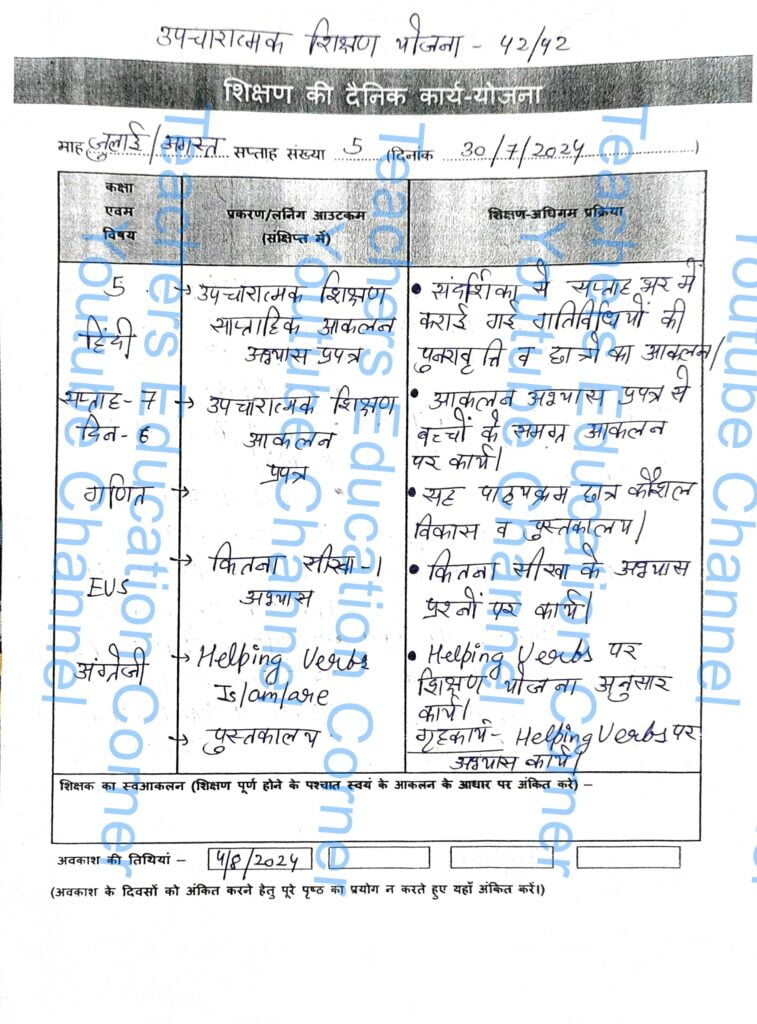 उपचारात्मक शिक्षण योजना - 42/42
शिक्षण की दैनिक कार्य-योजना
माह जुलाई/अगस्त सप्ताह संख्या 5 (दिनांक 30/7/2024)
कक्षा
एवम
विषय
प्रकरण/लर्निंग आउटकम
(संक्षिप्त में)
शिक्षण-अधिगम प्रक्रिया
5
हिंदी
→ उपचारात्मक शिक्षण
साप्ताहिक आकलन
अभ्यास प्रपत्र
• संदर्शिका से सप्ताह भर में
कराई गई गतिविधियों की
पुनरावृत्ति व छात्रों का आकलन।
सप्ताह- 7
दिन- 6
गणित →
→ उपचारात्मक शिक्षण
आकलन
प्रपत्र
• आकलन अभ्यास प्रपत्र से
बच्चों के समग्र आकलन
पर कार्य।
• सह पाठ्यक्रम छात्र कौशल
विकास व पुस्तकालय।
EVS
→ कितना सीखा -1
अभ्यास
• कितना सीखा के अभ्यास
प्रश्नों पर कार्य।
अंग्रेजी
→ Helping Verbs
Is/am/are
• Helping Verbs पर
शिक्षण योजना अनुसार
कार्य।
→ पुस्तकालय
गृहकार्य- Helping Verbs पर
अभ्यास कार्य।
शिक्षक का स्वआकलन (शिक्षण पूर्ण होने के पश्चात स्वयं के आकलन के आधार पर अंकित करें) –
अवकाश की तिथियां – 4/8/2024
(अवकाश के दिवसों को अंकित करने हेतु पूरे पृष्ठ का प्रयोग न करते हुए यहाँ अंकित करें।)
Teachers Education Corner
Youtube Channel
Teachers Education Corner
Youtube Channel
Teachers Education Corner
Youtube Channel
outube Channel